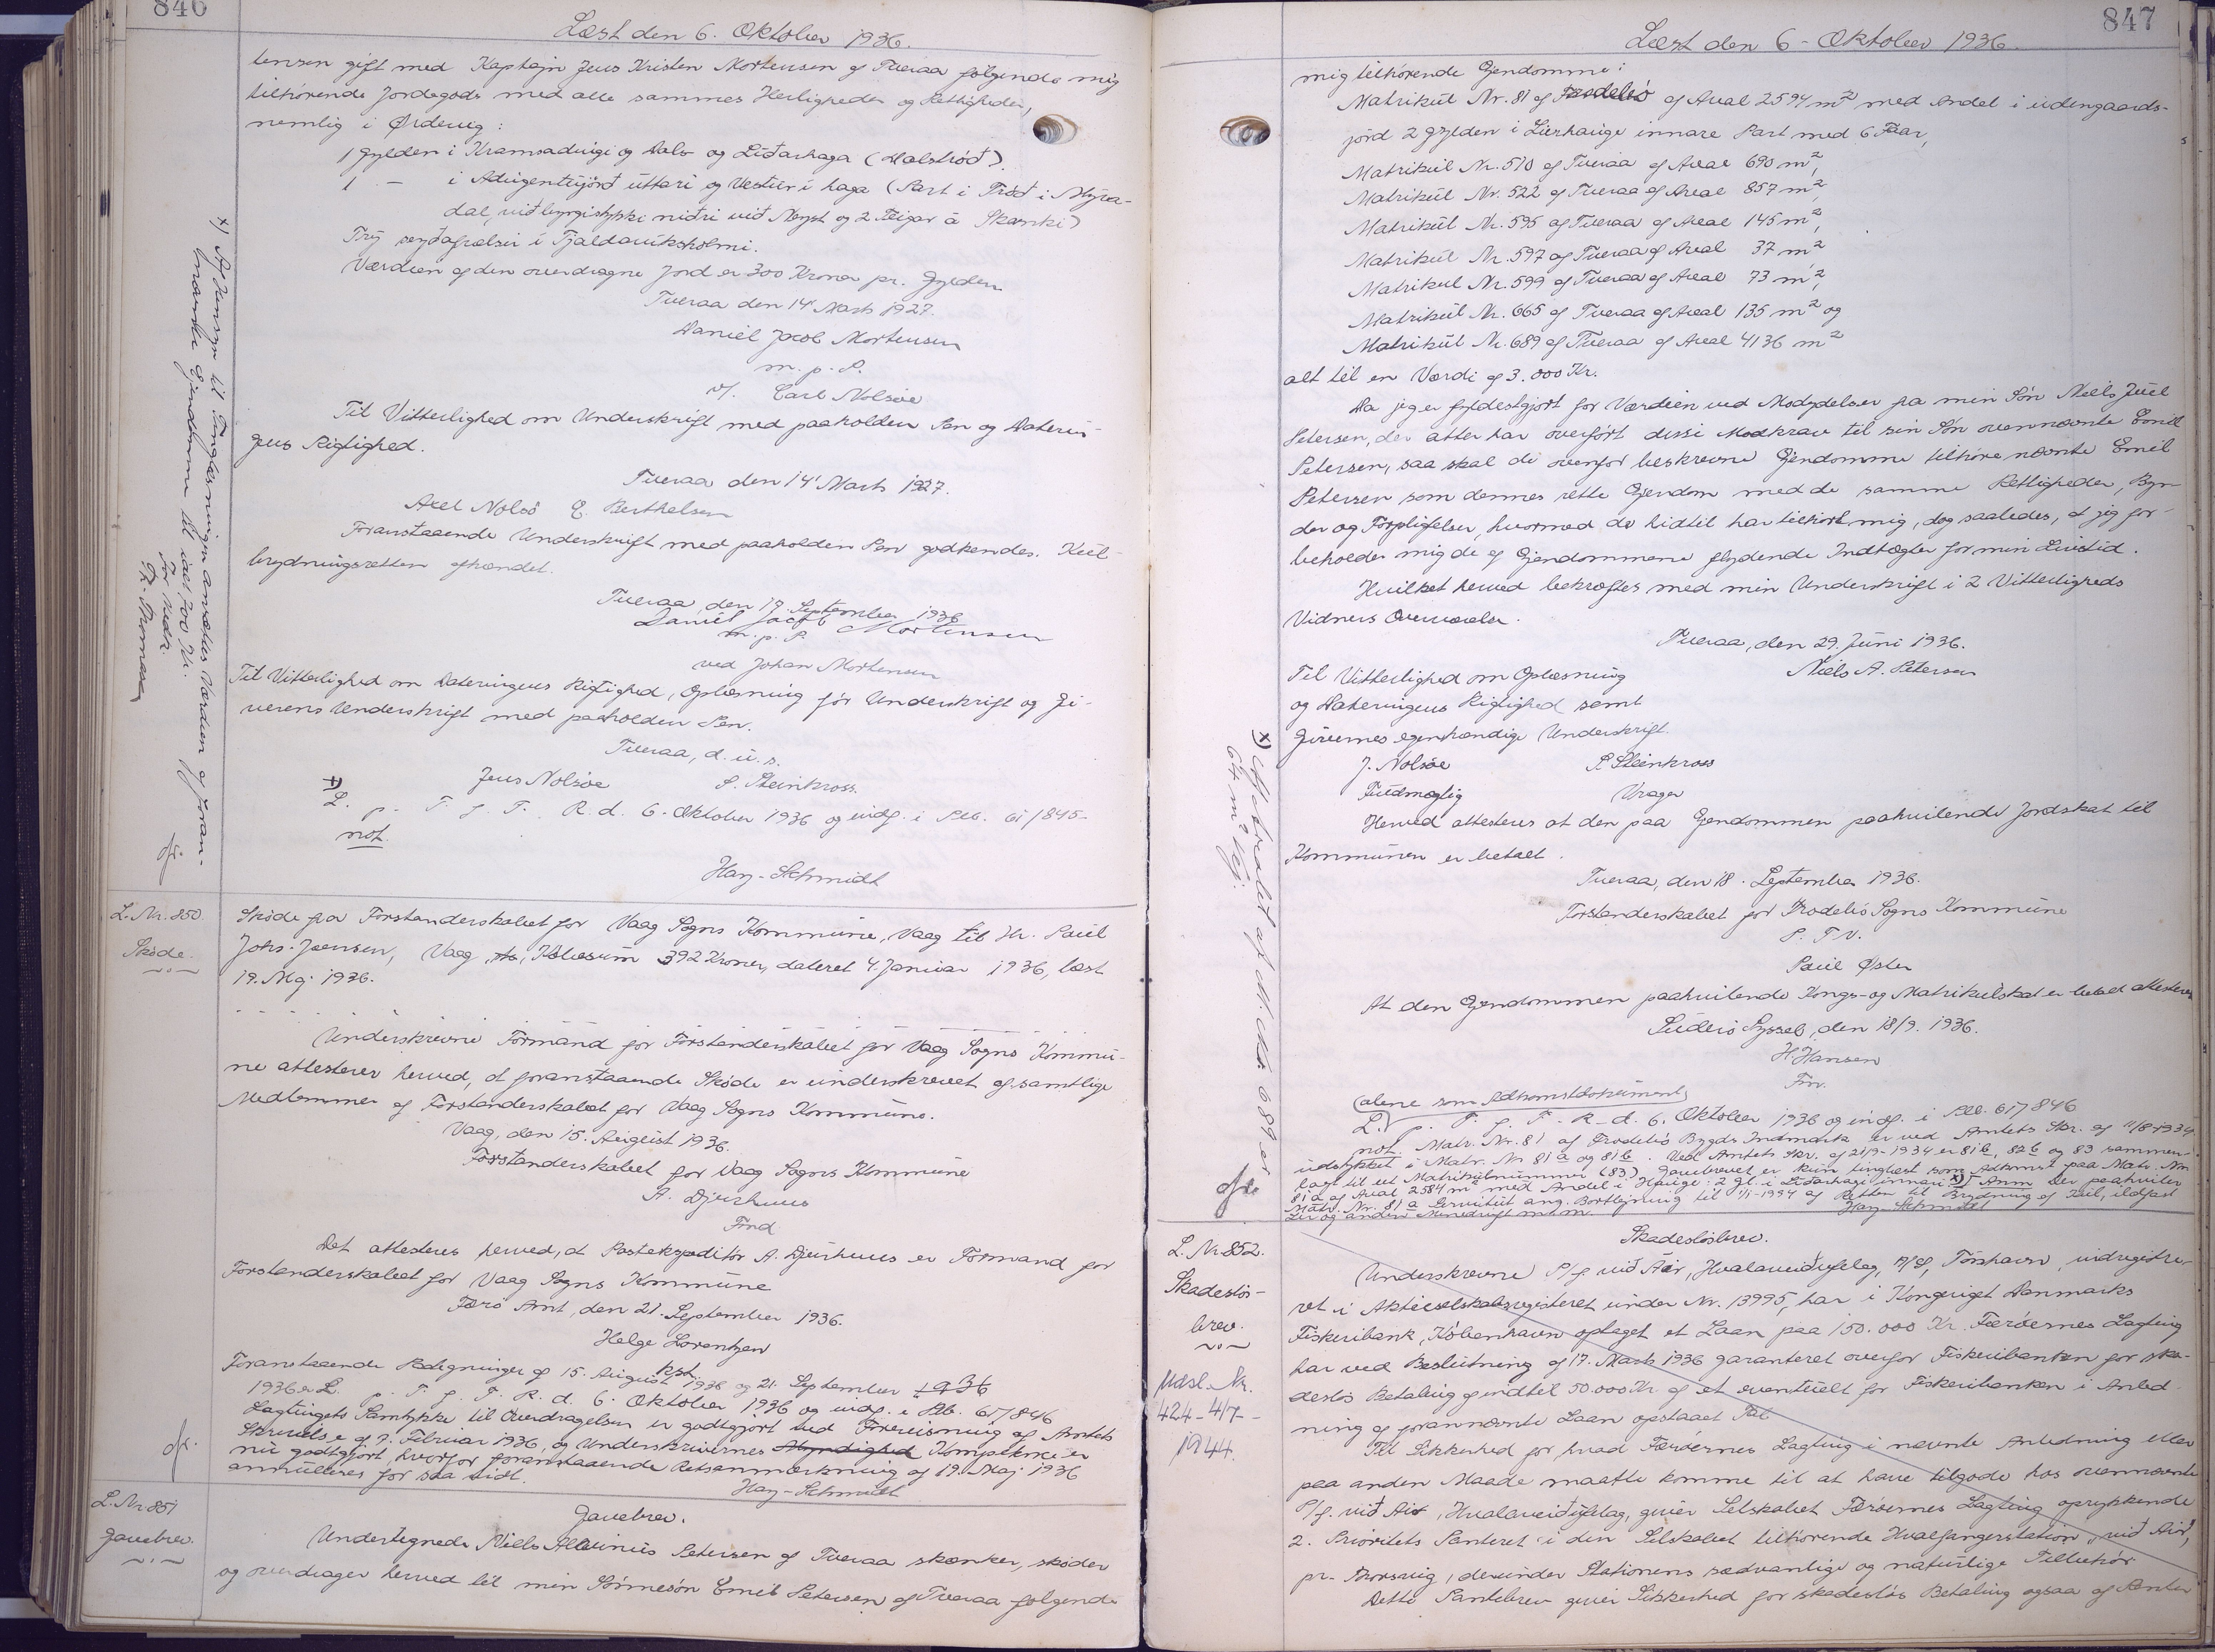 846
Læst den 6. Oktober 1936.
tensen gift med Kaptajn Jens Kristen Mortensen af Tveraa følgende mig
tilhørende Jordegods med alle sammes Herligheder og Rettigheder,
nemlig i Ørdevig:
1 Gylden i Kramsadvigi og Dals og Liðarhaga (Dalstrøð).
1 — i Advigentujørð úttari og Vestur í haga (Part i Trøð i Mýra-
dal, við byrgistykki niðri við Neyst og 2 Teigar á Skanki)
Trý seyðafælsir í Tjaldavíksholmi.
Værdien af den overdragne Jord er 300 Kroner pr. Gylden
Tveraa den 14' Marts 1927.
Daniel Jacob Mortensen
m. p. P.
v/. Carl Nolsøe
Til Vitterlighed om Underskrift med paaholden Pen og Daterin-
gens Rigtighed.
Tveraa den 14' Marts 1927.
Axel Nolsö E. Berthelsen
Foranstaaende Underskrift med paaholden Pen godkendes. Kul-
brydningsretten afhændet.
Tveraa, den 19. September 1936
Daniel Jacob Mortensen
m. p. P.
ved Johan Mortensen
Til Vitterlighed om Dateringens Rigtighed, Oplæsning før Underskrift og Gi-
verens Underskrift med paaholden Pen.
Tveraa, d. u. s.
Jens Nolsøe P. Steinkross.
+) L. p. T. f. F. R. d. 6. Oktober 1936 og indf. i Ptb. 61/845-
not.
Hay-Schmidt
+) A Hensyn til Tinglæsningen ansættes Værdien af foran-
nævnte Ejendomme til ialt 700 Kr.
Th. Thomassen
L. Nr. 850.
Skøde.
Skøde fra Forstanderskabet for Vaag Sogns Kommune, Vaag til Hr. Poul
Johs. Joensen, Vaag, Købesum 392 Kroner, dateret 4. Januar 1936, læst
19. Maj 1936.
Underskrevne Formand for Forstanderskabet for Vaag Sogns Kommu-
ne attesterer herved, at foranstaaende Skøde er underskrevet af samtlige
Medlemmer af Forstanderskabet for Vaag Sogns Kommune.
Vaag, den 15. August 1936.
Forstanderskabet for Vaag Sogns Kommune
A. Djurhuus
Fmd
Det attesteres herved, at Postekspeditør A. Djurhuus er Formand for
Forstanderskabet for Vaag Sogns Kommune
Færø Amt, den 21. September 1936.
Helge Lorentzen
kst.
Foranstaaende Paategninger af 15. August 1936 og 21. September 1936
1936 er L. p. T. f. F. R. d. 6. Oktober 1936 og indf. i Ptb. 61/846
Lagtingets Samtykke til Overdragelsen er godtgjort ved Forevisning af Amtets
Skrivelse af 7. Februar 1936, og Underskrivernes Myndighed Kompetence er
nu godtgjort, hvorfor foranstaaende Retsanmærkning af 19. Maj 1936
annulleres for saa vidt.
Hay-Schmidt
L. Nr. 851
Gavebrev.
Gavebrev.
Undertegnede Niels Albinius Petersen af Tveraa skænker, skøder
og overdrager herved til min Sønnesøn Emil Petersen af Tveraa følgende
847
Læst den 6 - Oktober 1936.
mig tilhørende Ejendomme:
Matrikul Nr. 81 af Frodebø af Areal 2594 m² med Andel i udengaards-
jord 2 Gylden i Lierhauge innare Part med 6 Faar,
Matrikul Nr. 510 af Tveraa af Areal 690 m²,
Matrikul Nr. 522 af Tveraa af Areal 857 m²,
Matrikul Nr. 595 af Tveraa af Areal 145 m²,
Matrikul Nr. 597 af Tveraa af Areal 37 m²
Matrikul Nr. 599 af Tveraa af Areal 73 m²,
Matrikul Nr. 665 af Tveraa af Areal 135 m² og
Matrikul Nr. 689 af Tveraa af Areal 4136 m²
alt til en Værdi af 3.000 Kr.
Da jeg er fyldestgjort for Værdien ved Modydelser fra min Søn Niels Juul
Petersen, der atter har overført disse Modkrav til sin Søn ovennævnte Emil
Petersen, saa skal de ovenfor beskrevne Ejendomme tilhøre nævnte Emil
Petersen som dennes rette Ejendom med de samme Rettigheder, Byr-
der og Forpligtelser, hvormed de hidtil har tilhørt mig, dog saaledes, at jeg for-
beholder mig de af Ejendommene flydende Indtægter for min Livstid.
Hvilket herved bekræftes med min Underskrift i 2 Vitterligheds
Vidners Overværelse.
Tveraa, den 29. Juni 1936.
Niels A. Petersen
Til Vitterlighed om Oplæsning
og Dateringens Rigtighed samt
Givernes egenhændige Underskrift.
J. Nolsøe P. Steinkross
Fuldmægtig Vrager
Herved attesteres at den paa Ejendommen paahvilende Jordskat til
Kommunen er betalt.
Tveraa, den 18. September 1936.
Forstanderskabet for Frodebø Sogns Kommune
P. F. V.
Poul Øster
At den Ejendommen paahvilende Kongs- og Matrikulskat er betalt attesteres
Suderø Syssel, den 18/9. 1936.
H Hansen
Fm.
(alene som Adkomstdokument)
L. p. T. f. F. R. d. 6. Oktober 1936 og indf. i Ptb. 61/846
not. Matr. Nr. 81 af Frodebø Bygds Indmark er ved Amtets Skr. af 11/8-1934
udstykket i Matr. Nr 81 a og 81 b. Ved Amtets Skr. af 21/9-1934 er 81 b, 82 b og 83 sammen-
lagt til eet Matrikulnummer (83). Gavebrevet er kun tinglæst som Adkomst paa Matr. Nr.
81 a af Areal 2584 m² med Andel i Hauge: 2 Gl. i Liðarhagi innari +) Anm Der paahviler
Matr. Nr. 81 a Servitut ang. Bortlejning til 1/1-1994 af Retten til Brydning af Kul, ildfast
Ler og anden Minedrift m.m. Hay-Schmidt
+) Afbetalt af M. Nr. 689 er
64 m² Vej.
L. Nr 852.
Skadesløs-
brev.
Udsl. Nr.
424-4/7-
1944.
Skadesløsbrev.
Underskrevne P/f. við Áir, Hvalaveiðifelag, A/S, Tórshavn, indregistre-
ret i Aktieselskabsregisteret under Nr. 13995, har i Kongeriget Danmarks
Fiskeribank, København optaget et Laan paa 150.000 Kr. Færøernes Lagting
har ved Beslutning af 17. Marts 1936 garanteret overfor Fiskeribanken for ska-
desløs Betaling af indtil 50.000 Kr. af et eventuelt for Fiskeribanken i Anled-
ning af forannævnte Laan opstaaet Tab
Til Sikkerhed for hvad Færøernes Lagting i nævnte Anledning eller
paa anden Maade maatte komme til at have tilgode hos ovennævnte
P/f. við Áir, Hvalaveiðifelag, giver Selskabet Færøernes Lagting oprykkende
2. Prioritets Panteret i den Selskabet tilhørende Hvalfangerstation „við Áir",
pr. Thorsvig, derunder Stationens sædvanlige og naturlige Tilbehør
Dette Pantebrev giver Sikkerhed for skadesløs Betaling ogsaa af Renter